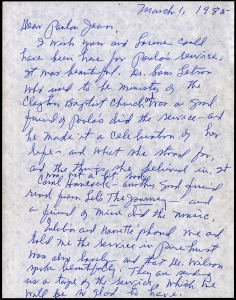 March 1, 1985
Dear Paula Jean,
I wish you and Lorene could
have been here for Paula's service.
It was beautiful. Dr. Sam
who used to be minister of the
Clayton Baptist Church was a good
friend of Paula's did the service - and
he made it a celebration of her
life - and what she stood for,
and the things she believed in,
another good friend
read from The Journey - and
a friend of mine did the music.
and Nanette phoned me and
told me the service in
was also lovely - and that Dr. Wilson
spoke beautifully. They are sending
us a tape of the service which we
will be so glad to have.